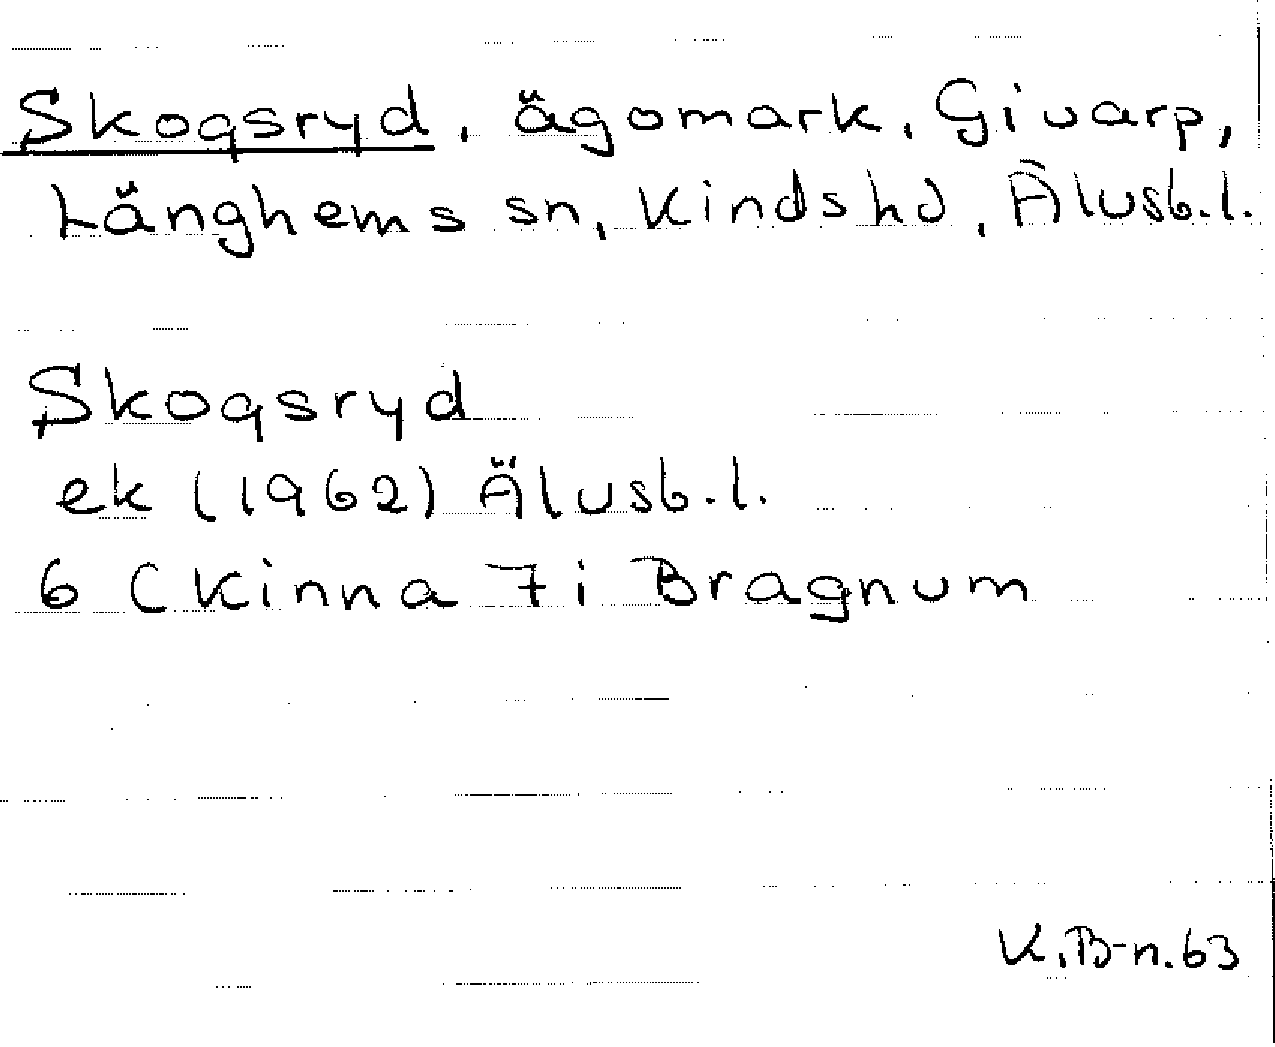 Skogsryd, ägomark, Givarp,
Länghems sn, Kinds hd, Älvsb.l.
Skogsryd
ek (1962) Älvsb.l.
6 C Kinna 7i Bragnum
K.B-n.63